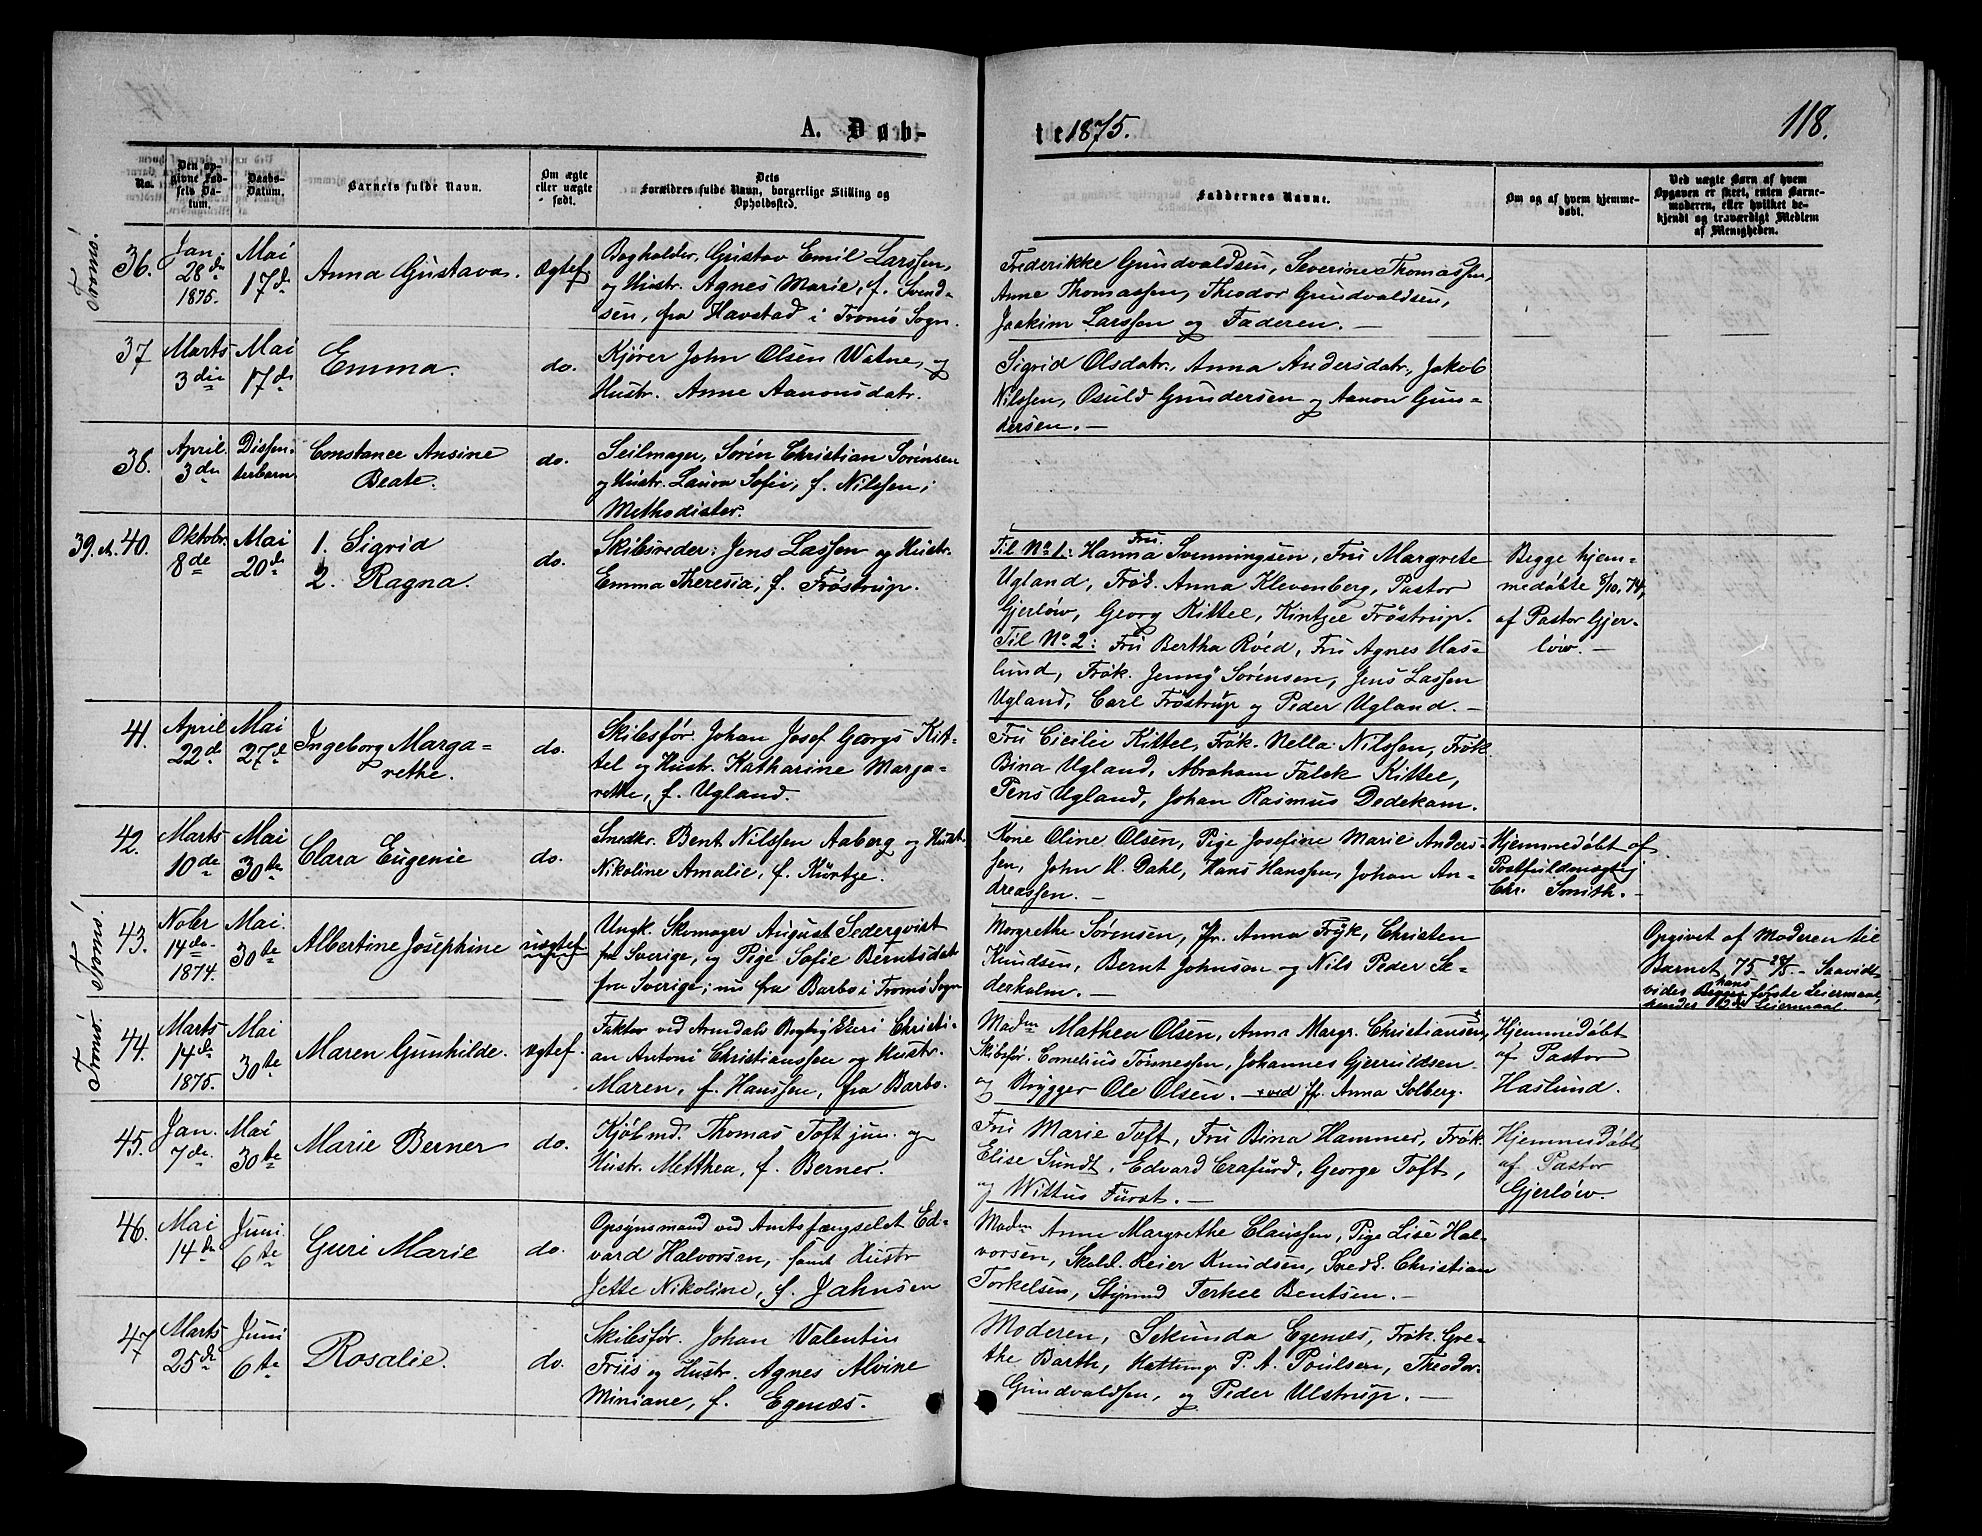 118.
A. Døb-
te 1875.
No.
Den op-
givne Fød-
sels Da-
tum.
Daabs-
Datum.
Barnets fulde Navn.
Om ægte
eller uægte
født.
Dets
Forældres fulde Navn, borgerlige Stilling og
Opholdssted.
Faddernes Navne.
Om og af hvem hjemme-
døbt.
Ved uægte Børn af hvem
Opgaven er skeet, enten Barne-
moderen, eller hvilket be-
kjendt og troværdigt Medlem
af Menigheden.
Tromö!
36.
Jan.
28de
1875.
Mai
17de
Anna Gustava.
Ægtef.
Bogholder, Gustav Emil Larssen,
og Hustr. Agnes Marie, f. Svend-
sen, fra Havstad i Tromö Sogn.
Frederikke Gundvaldsen, Severine Thomassen,
Anne Thomassen, Theodor Gundvaldsen,
Joakim Larssen og Faderen. —
37
Marts
3die
Mai
17de
Emma.
do.
Kjører John Olsen Watne, og
Hustr. Anne Aanonsdatr.
Sigrid Olsdatr., Anna Andersdatr, Jakob
Nilssen, Osuld Gundersen og Aanon Gun-
dersen. —
38.
April.
3die
Dissen-
terbarn
Constance Ansine
Beate.
do.
Seilmager, Sören Christian Sörensen
og Hustr. Laura Sofie, f. Nilssen;
Methodister.
39. og 40.
Oktobr.
8de
Mai
20de
1. Sigrid
2. Ragna.
do.
Skibsreder: Jens Lassen og Hustr.
Emma Theresia, f. Fröstrup.
Til No 1: Fru Hanna Svenningsen, Fru Margrete
Ugland, Frøk. Anna Klevenberg, Pastor
Gjerløw, Georg Kittel, Kintzee Fröstrup.
Til No 2: Fru Bertha Röed, Fru Agnes Has-
lund, Frøk. Jenny Sörensen, Jens Lassen
Ugland, Carl Fröstrup og Peder Ugland. —
Begge hjem-
medöbte 8/10. 74,
af Pastor Gjer-
löw. —
41.
April
22de
Mai
27de
Ingeborg Marga-
rethe.
do.
Skibsför. Johan Josef Georgs Kit-
tel og Hustr. Katharine Marga-
rethe, f. Ugland.
Fru Cicilie Kittel, Frøk. Nella Nilssen, Frøk
Bina Ugland, Abraham Falck Kittel,
Jens Ugland, Johan Rasmus Dedekam.
42.
Marts
10de
Mai
30te
Clara Eugenie
do.
Snedkr. Bent Nilssen Aaberg og Hustr.
Nikoline Amalie, f. Kürtze.
Kone Oline Olsen, Pige Josefine Marie Anders-
sen, John H. Dahl, Hans Hanssen, Johan An-
dreassen. —
Hjemmedøbt af
Postfuldmægtig
Chr. Smith. —
Tromö!
43.
Nobr
14de
1874.
Mai.
30te
Albertine Joséphine
uægtef
Ungk. Skomager August Sederqvist
fra Sverige, og Pige Sofie Berntsdatr
fra Sverige; nu fra Barbo i Tromö Sogn
Margrethe Sörensen, Jfr. Anna Fryk, Christen
Knudsen, Bernt Johnson og Nils Peder Se-
derholm. —
Opgivet af Moderen til
Barnet, 75 28/5. — Saavidt
vides hans første Leiermaal,
hendes 2det Leiermaal.
Tromö!
44.
Marts
14de
1875.
Mai
30te
Maren Gunhilde.
ægtef.
Faktor ved Arendals Bogtrykkeri Christi-
an Antoni Christianssen og Hustr.
Maren, f. Hanssen, fra Barbo.
Madm Mathea Olsen, Anna Margr. Christiansen,
Skibsför. Cornelius Tönnessen, Johannes Gjeruldsen
og Brygger Ole Olsen. — + ved Jfr. Anna Solberg.
Hjemmedøbt
af Pastor
Haslund.
45.
Jan.
7de.
Mai
30te
Marie Berner
do.
Kjöbmd. Thomas Toft jun. og
Hustr. Metthea, f. Berner.
Fru Marie Toft, Fru Bina Hammer, Frøk.
Elise Sundt, Edvard Crafurd, George Toft,
og Wittus Fürst. —
Hjemmedøbt
af Pastor
Gjerlöw.
46.
Mai
14de
Juni
6te
Guri Marie
do.
Opsynsmand ved Amtsfængselet Ed-
vard Halvorsen, samt Hustr
Jette Nikoline, f. Jahnsen
Madm Anne Margrethe Claussen, Pige Lise Hal-
vorsen, Reier Knudsen, Snedk. Christian
Torkelsen, Styrmd Terkel Bentsen. —
47
Marts
25de
Juni
6te
Rosalie.
do.
Skibsför. Johan Valentin
Friis og Hustr. Agnes Alvine
Miniane, f. Egenæs.
Moderen, Sekunda Egenæs, Frøk. Gre-
the Barth, P. A. Poulsen, Theodor
Gundvaldsen, og Peder Ulstrup. —